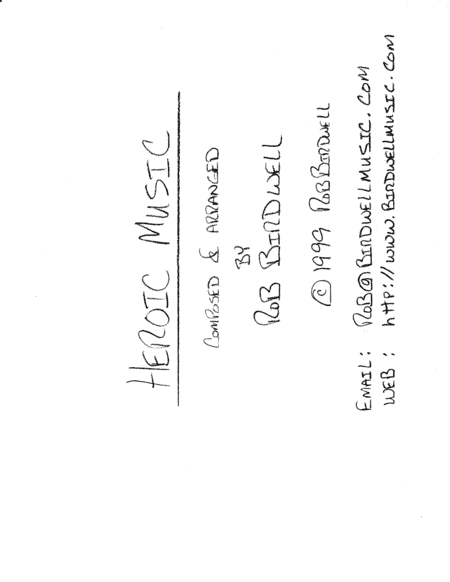 HEROIC MUSIC
COMPOSED & ARRANGED
BY
ROB BIRDWELL
© 1999 ROB BIRDWELL
EMAIL: ROB@BIRDWELLMUSIC.COM
WEB: http://www.BIRDWELLMUSIC.COM